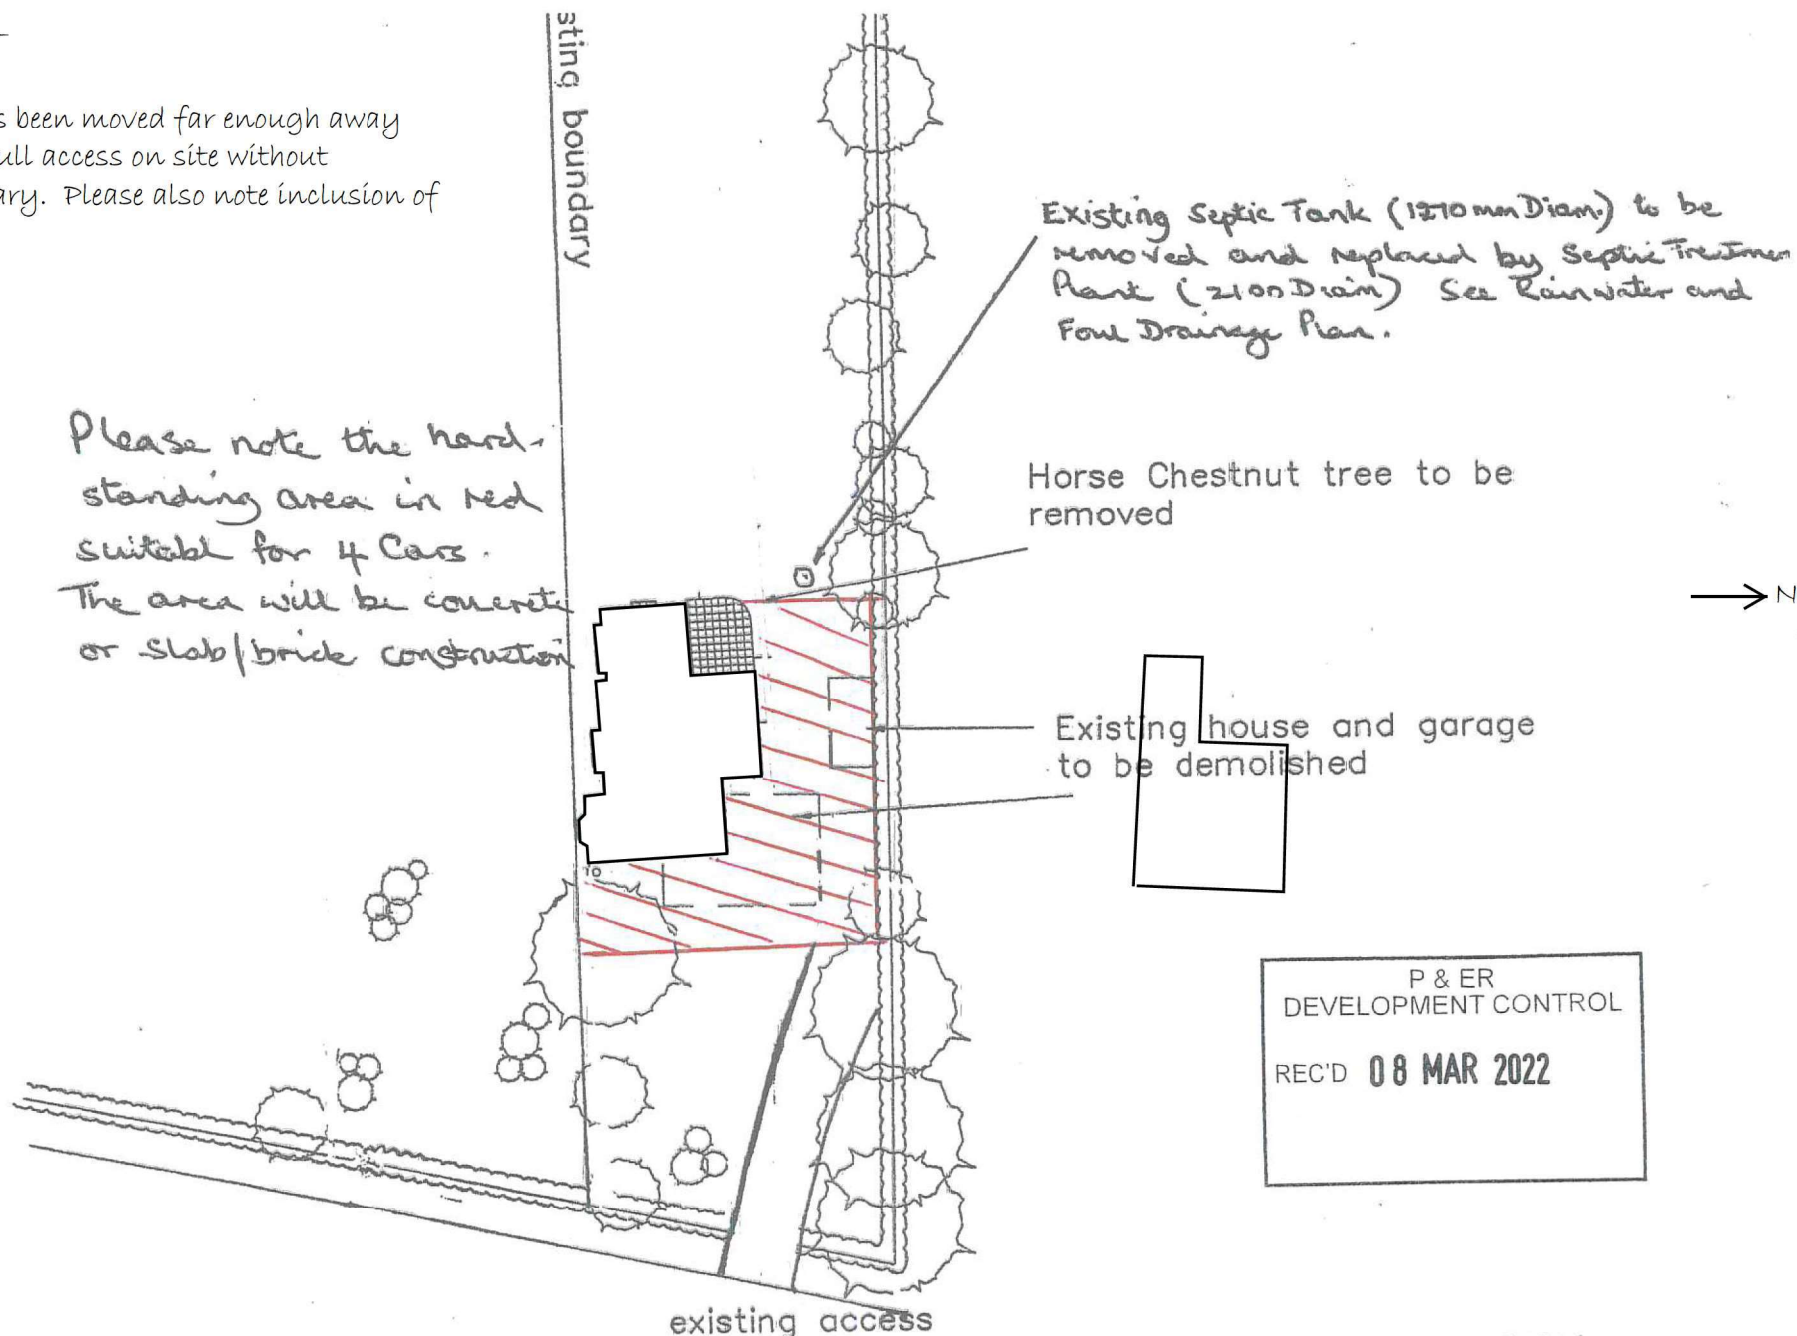 s been moved far enough away
ull access on site without
ary. Please also note inclusion of
sting boundary
Existing Septic Tank (1270mm Diam.) to be
removed and replaced by Septic Treatmen
Plant (2100 Diam) See Rainwater and
Foul Drainage Plan.
Please note the hard-
standing area in red
suitabl for 4 Cars.
The area will be concrete
or Slab/brick construction
Horse Chestnut tree to be
removed
N
Existing house and garage
to be demolished
TO
P & ER
DEVELOPMENT CONTROL
REC'D 08 MAR 2022
existing access